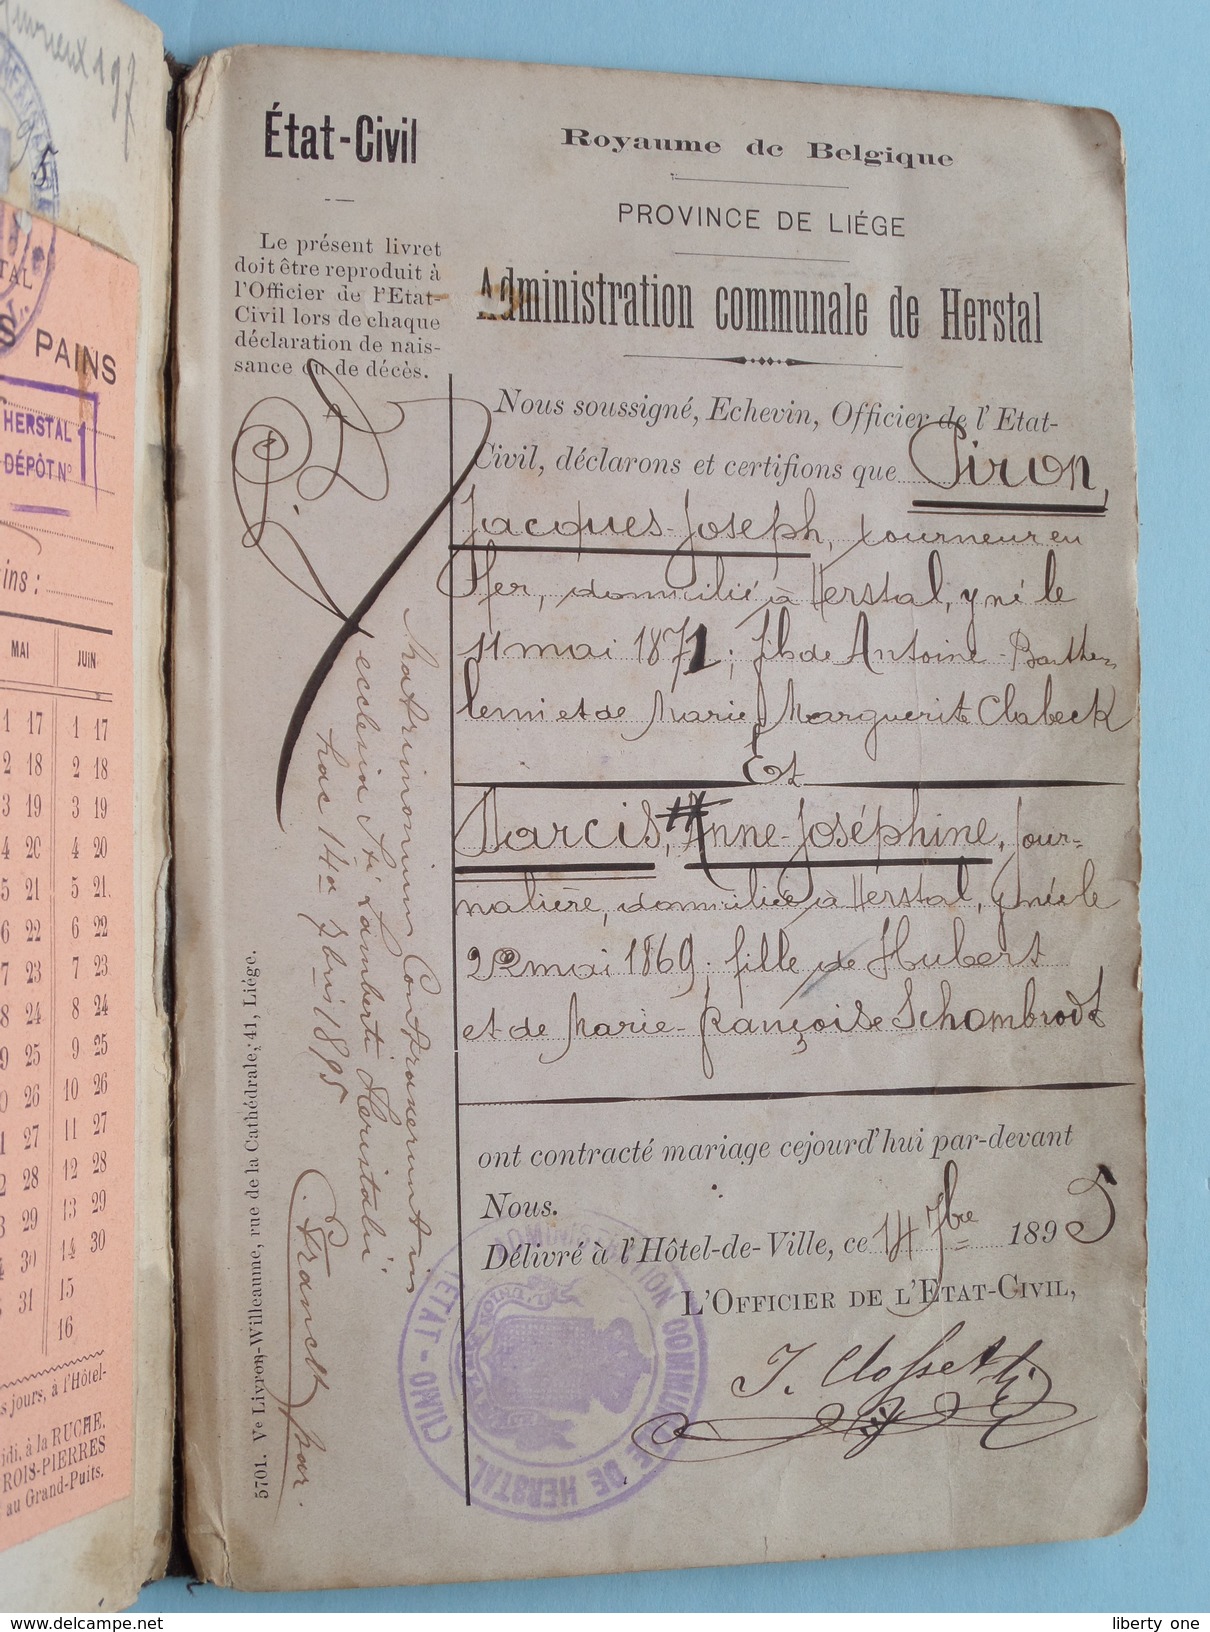 État-Civil
Le présent livret
doit être reproduit à
l'Officier de l'Etat-
Civil lors de chaque
déclaration de nais-
sance ou de décès.
Royaume de Belgique
PROVINCE DE LIÉGE
Administration communale de Herstal
Nous soussigné, Echevin, Officier de l'Etat-
Civil, déclarons et certifions que Piron,
Jacques-Joseph, tourneur en
fer, domicilié à Herstal, y né le
11 mai 1871; fils de Antoine-Barthe-
lemi et de Marie Marguerite Clabeck
Et
Narcis, Anne-Joséphine, jour-
nalière, domiciliée à Herstal, y née le
22 mai 1869; fille de Hubert
et de Marie-Françoise Schombrodt
ont contracté mariage cejourd'hui par-devant
Nous.
Délivré à l'Hôtel-de-Ville, ce 14 7bre 1895
L'OFFICIER DE L'ETAT-CIVIL,
J. Closset
ADMINISTRATION COMMUNALE DE HERSTAL
ÉTAT-CIVIL
L'UNION
Matrimonium Contraxerunt in
ecclesia Sti Lamberti Heristalii
hac 14a 7bris 1895
par.
5701. Ve Livron-Willeaume, rue de la Cathédrale, 41, Liége.
197
5
TAL
S PAINS
HERSTAL
DÉPÔT No 1
ins :
MAI JUIN
1 17 1 17
2 18 2 18
3 19 3 19
4 20 4 20
5 21 5 21
6 22 6 22
7 23 7 23
8 24 8 24
9 25 9 25
0 26 10 26
1 27 11 27
2 28 12 28
3 29 13 29
4 30 14 30
5 31 15
16
s jours, à l'Hôtel-
idi, à la RUCHE.
ROIS-PIERRES
au Grand-Puits.
liberty one